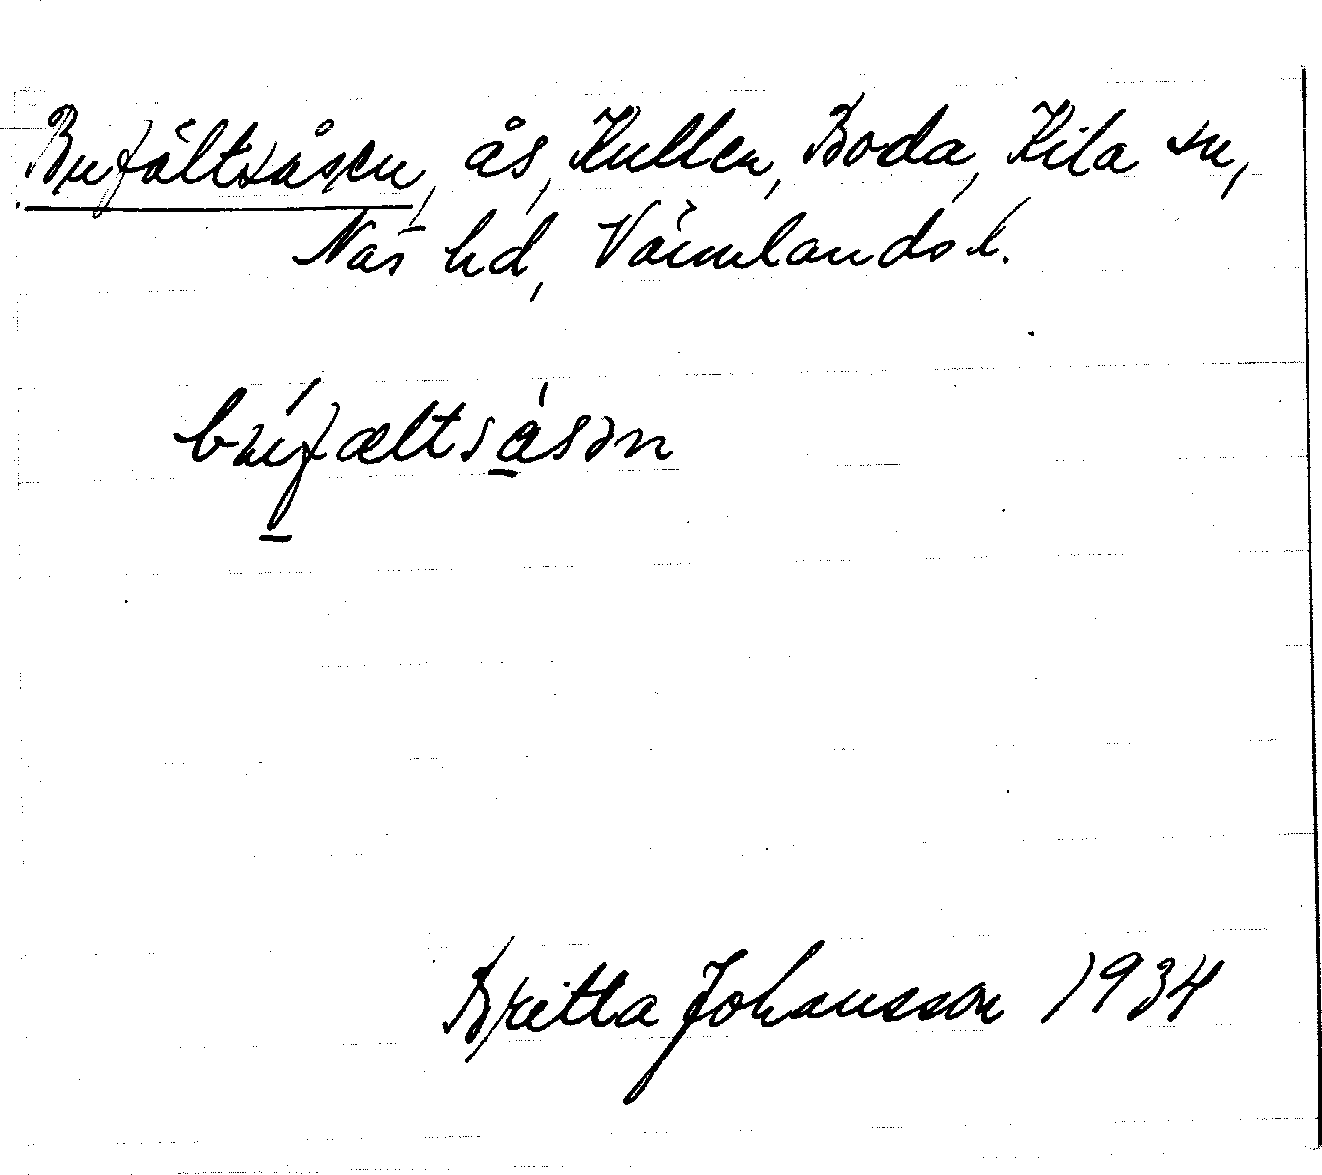 Bufältsåsen, ås, Kullen, Boda, Kila sn,
Näs hd, Värmlands l.
bu̱fæltsåsən
Britta Johansson 1934